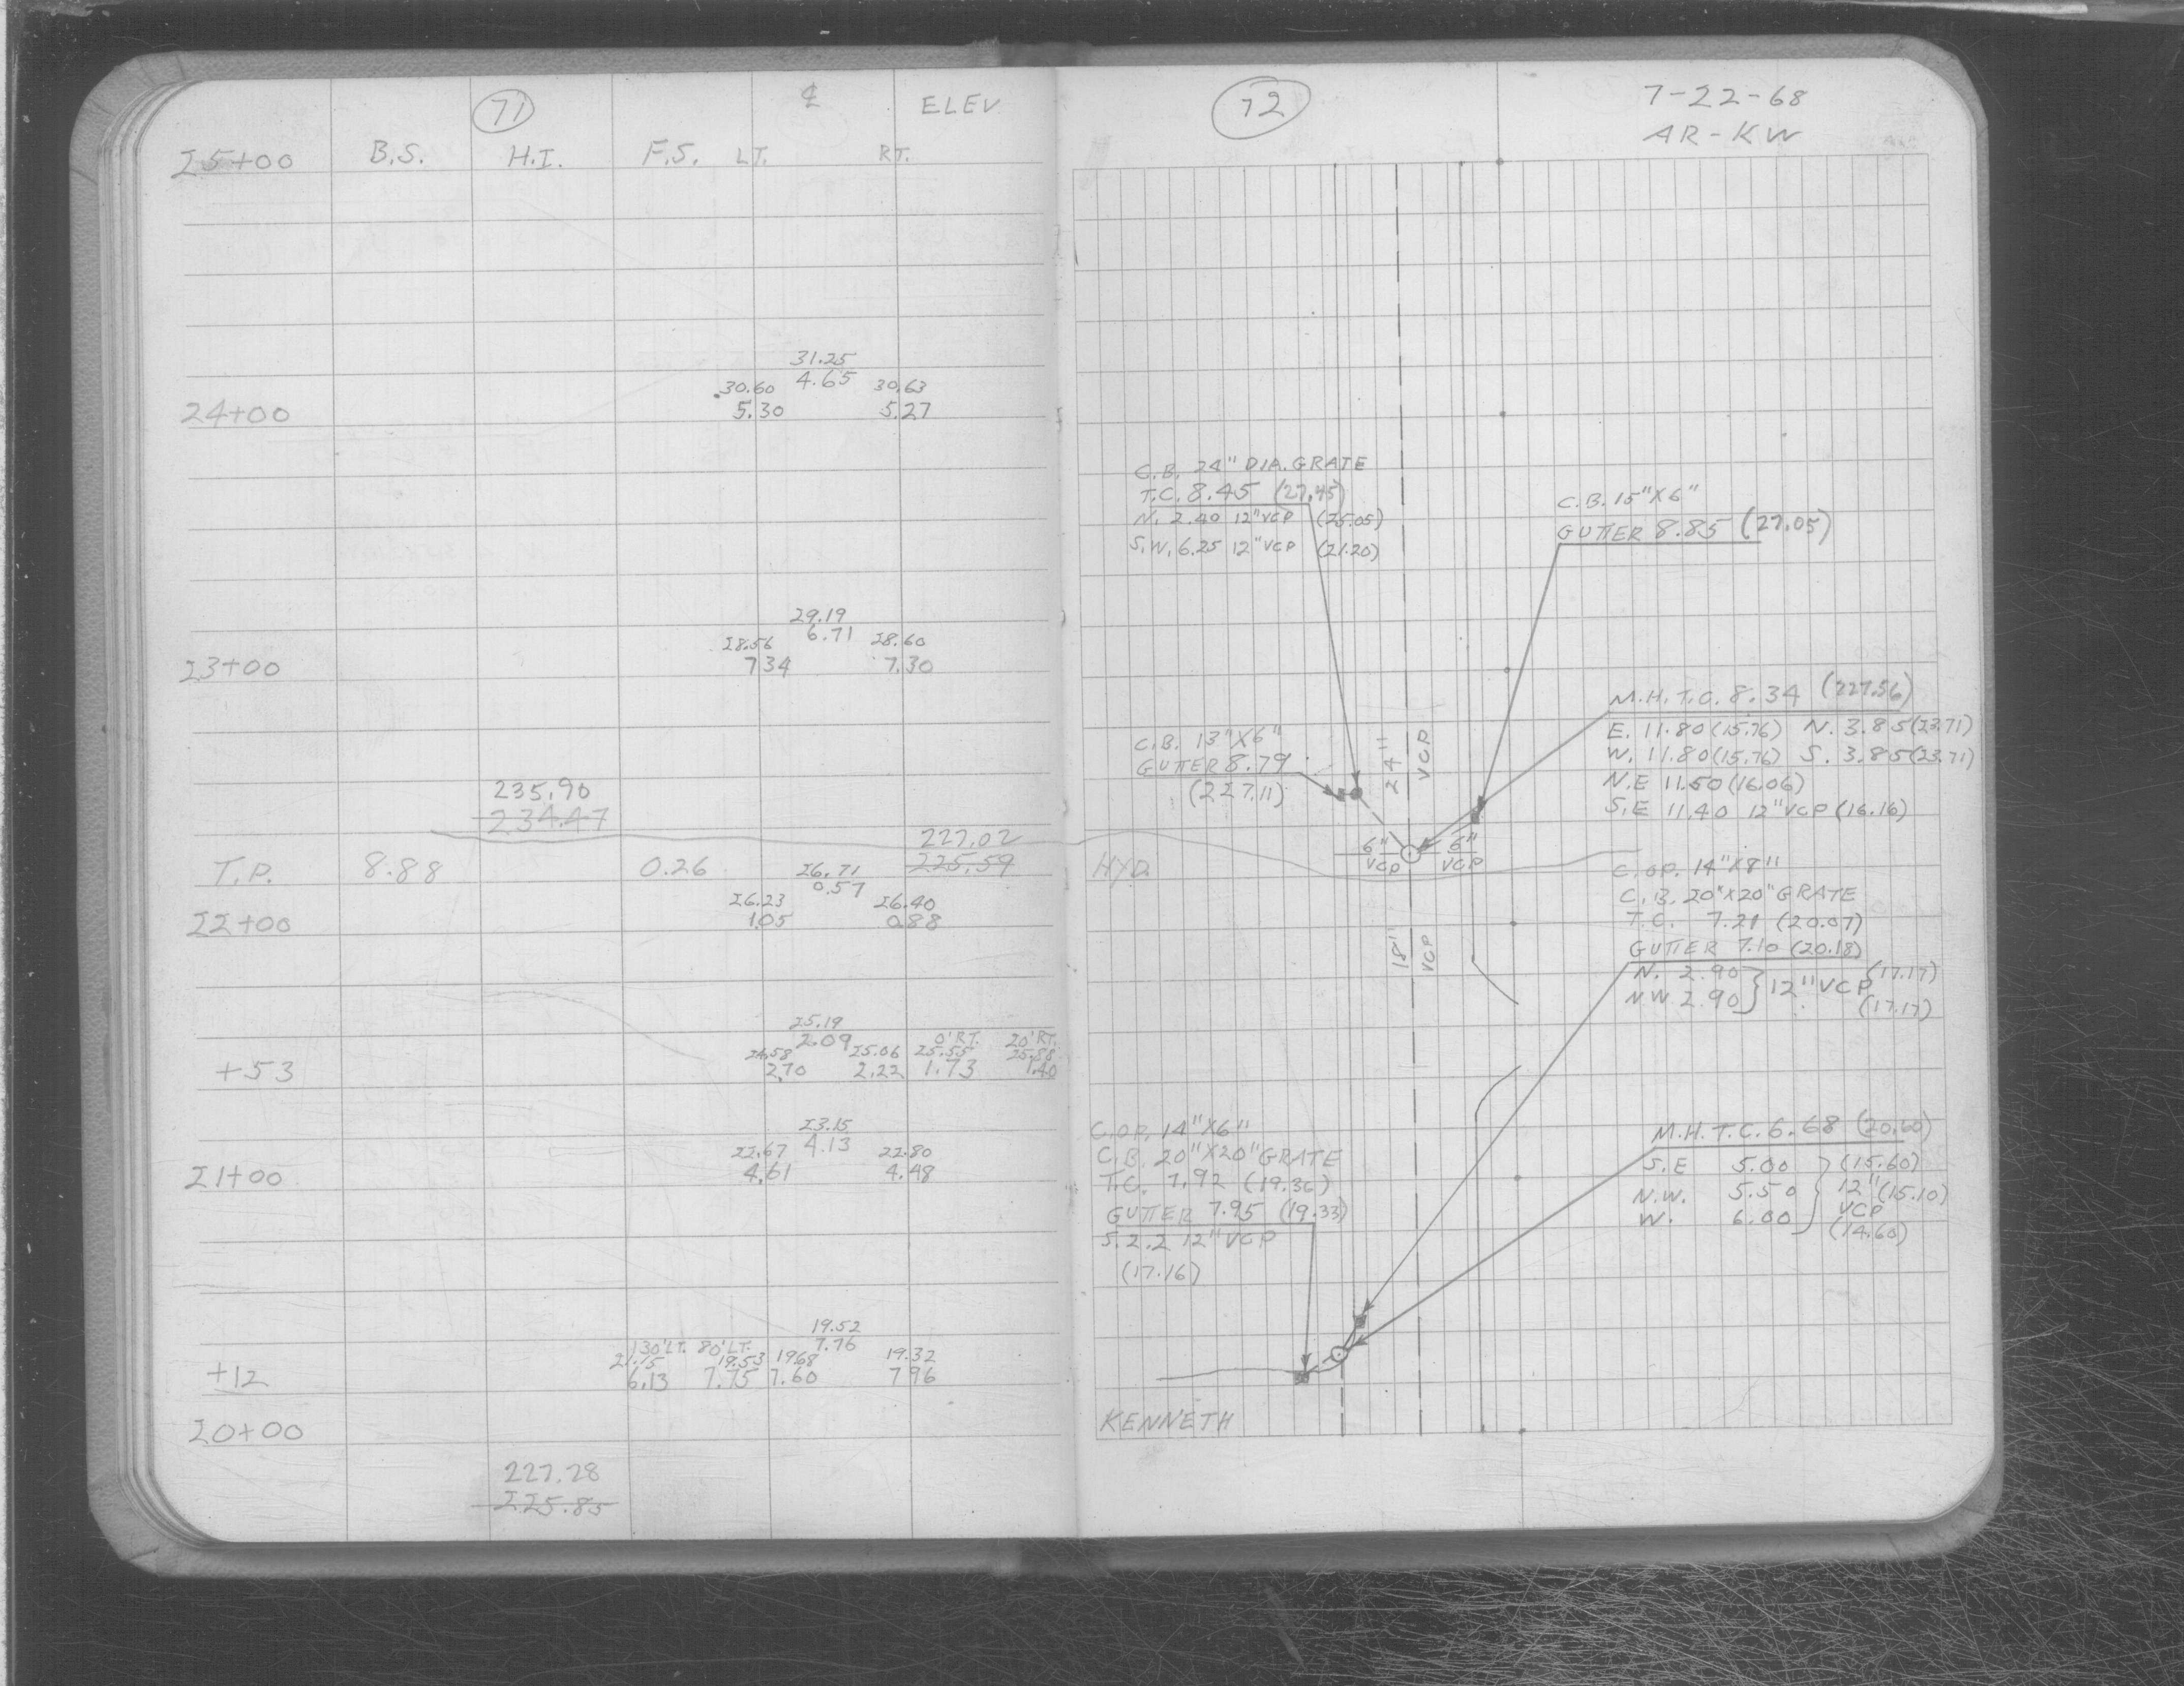 71 ℄ ELEV
25+00 B.S. H.I. F.S. LT. RT.
31.25
30.60 4.65 30.63
24+00 5.30 5.27
29.19
28.56 6.71 28.60
23+00 7.34 7.30
235.90
234.47
227.02
T.P. 8.88 0.26 26.71 225.59
26.23 0.57 26.40
22+00 1.05 0.88
25.19
2.09 0'RT. 20'RT.
24.58 25.06 25.55 25.88
+53 2.70 2.22 1.73 1.40
23.15
22.67 4.13 22.80
21+00 4.61 4.48
19.52
130'LT. 80'LT. 7.76
21.15 19.53 19.68 19.32
+12 6.13 7.75 7.60 7.96
20+00
227.28
225.85
72 7-22-68
AR-KW
C.B. 24" DIA. GRATE
T.C. 8.45 (27.45)
N. 2.40 12" VCP (25.05)
S.W. 6.25 12" VCP (21.20)
C.B. 15"X6"
GUTTER 8.85 (27.05)
M.H. T.C. 8.34 (227.56)
E. 11.80 (15.76) N. 3.85 (23.71)
W. 11.80 (15.76) S. 3.85 (23.71)
N.E 11.50 (16.06)
S.E 11.40 12" VCP (16.16)
C.B. 13"X6"
GUTTER 8.79
(227.11)
24" VCP
6" VCP 6" VCP
HYD.
18" VCP
C.OP. 14"X8"
C.B. 20"X20" GRATE
T.C. 7.21 (20.07)
GUTTER 7.10 (20.18)
N. 2.90 } 12" VCP (17.17)
NW 2.90 (17.17)
C.OP. 14"X6"
C.B. 20"X20" GRATE
T.C. 7.92 (19.36)
GUTTER 7.95 (19.33)
S. 2.2 12" VCP
(17.16)
M.H. T.C. 6.68 (20.60)
S.E 5.00 (15.60)
N.W. 5.50 } 12" (15.10)
W. 6.00 VCP
(14.60)
KENNETH